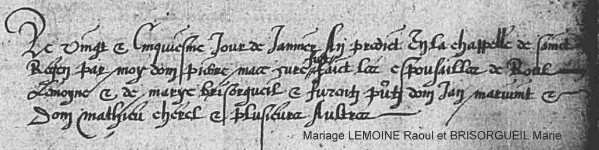 Le vingt & cinquiesme jour de Janvier An predict En la chappelle de sainct
par moy dom pierre mace curé fust faict les espousailles de Roul
Lemoyne & de marye brisorgueil & furent pnts dom Jan &
Dom mathieu cherel & plusieurs Aultres
Mariage LEMOINE Raoul et BRISORGUEIL Marie